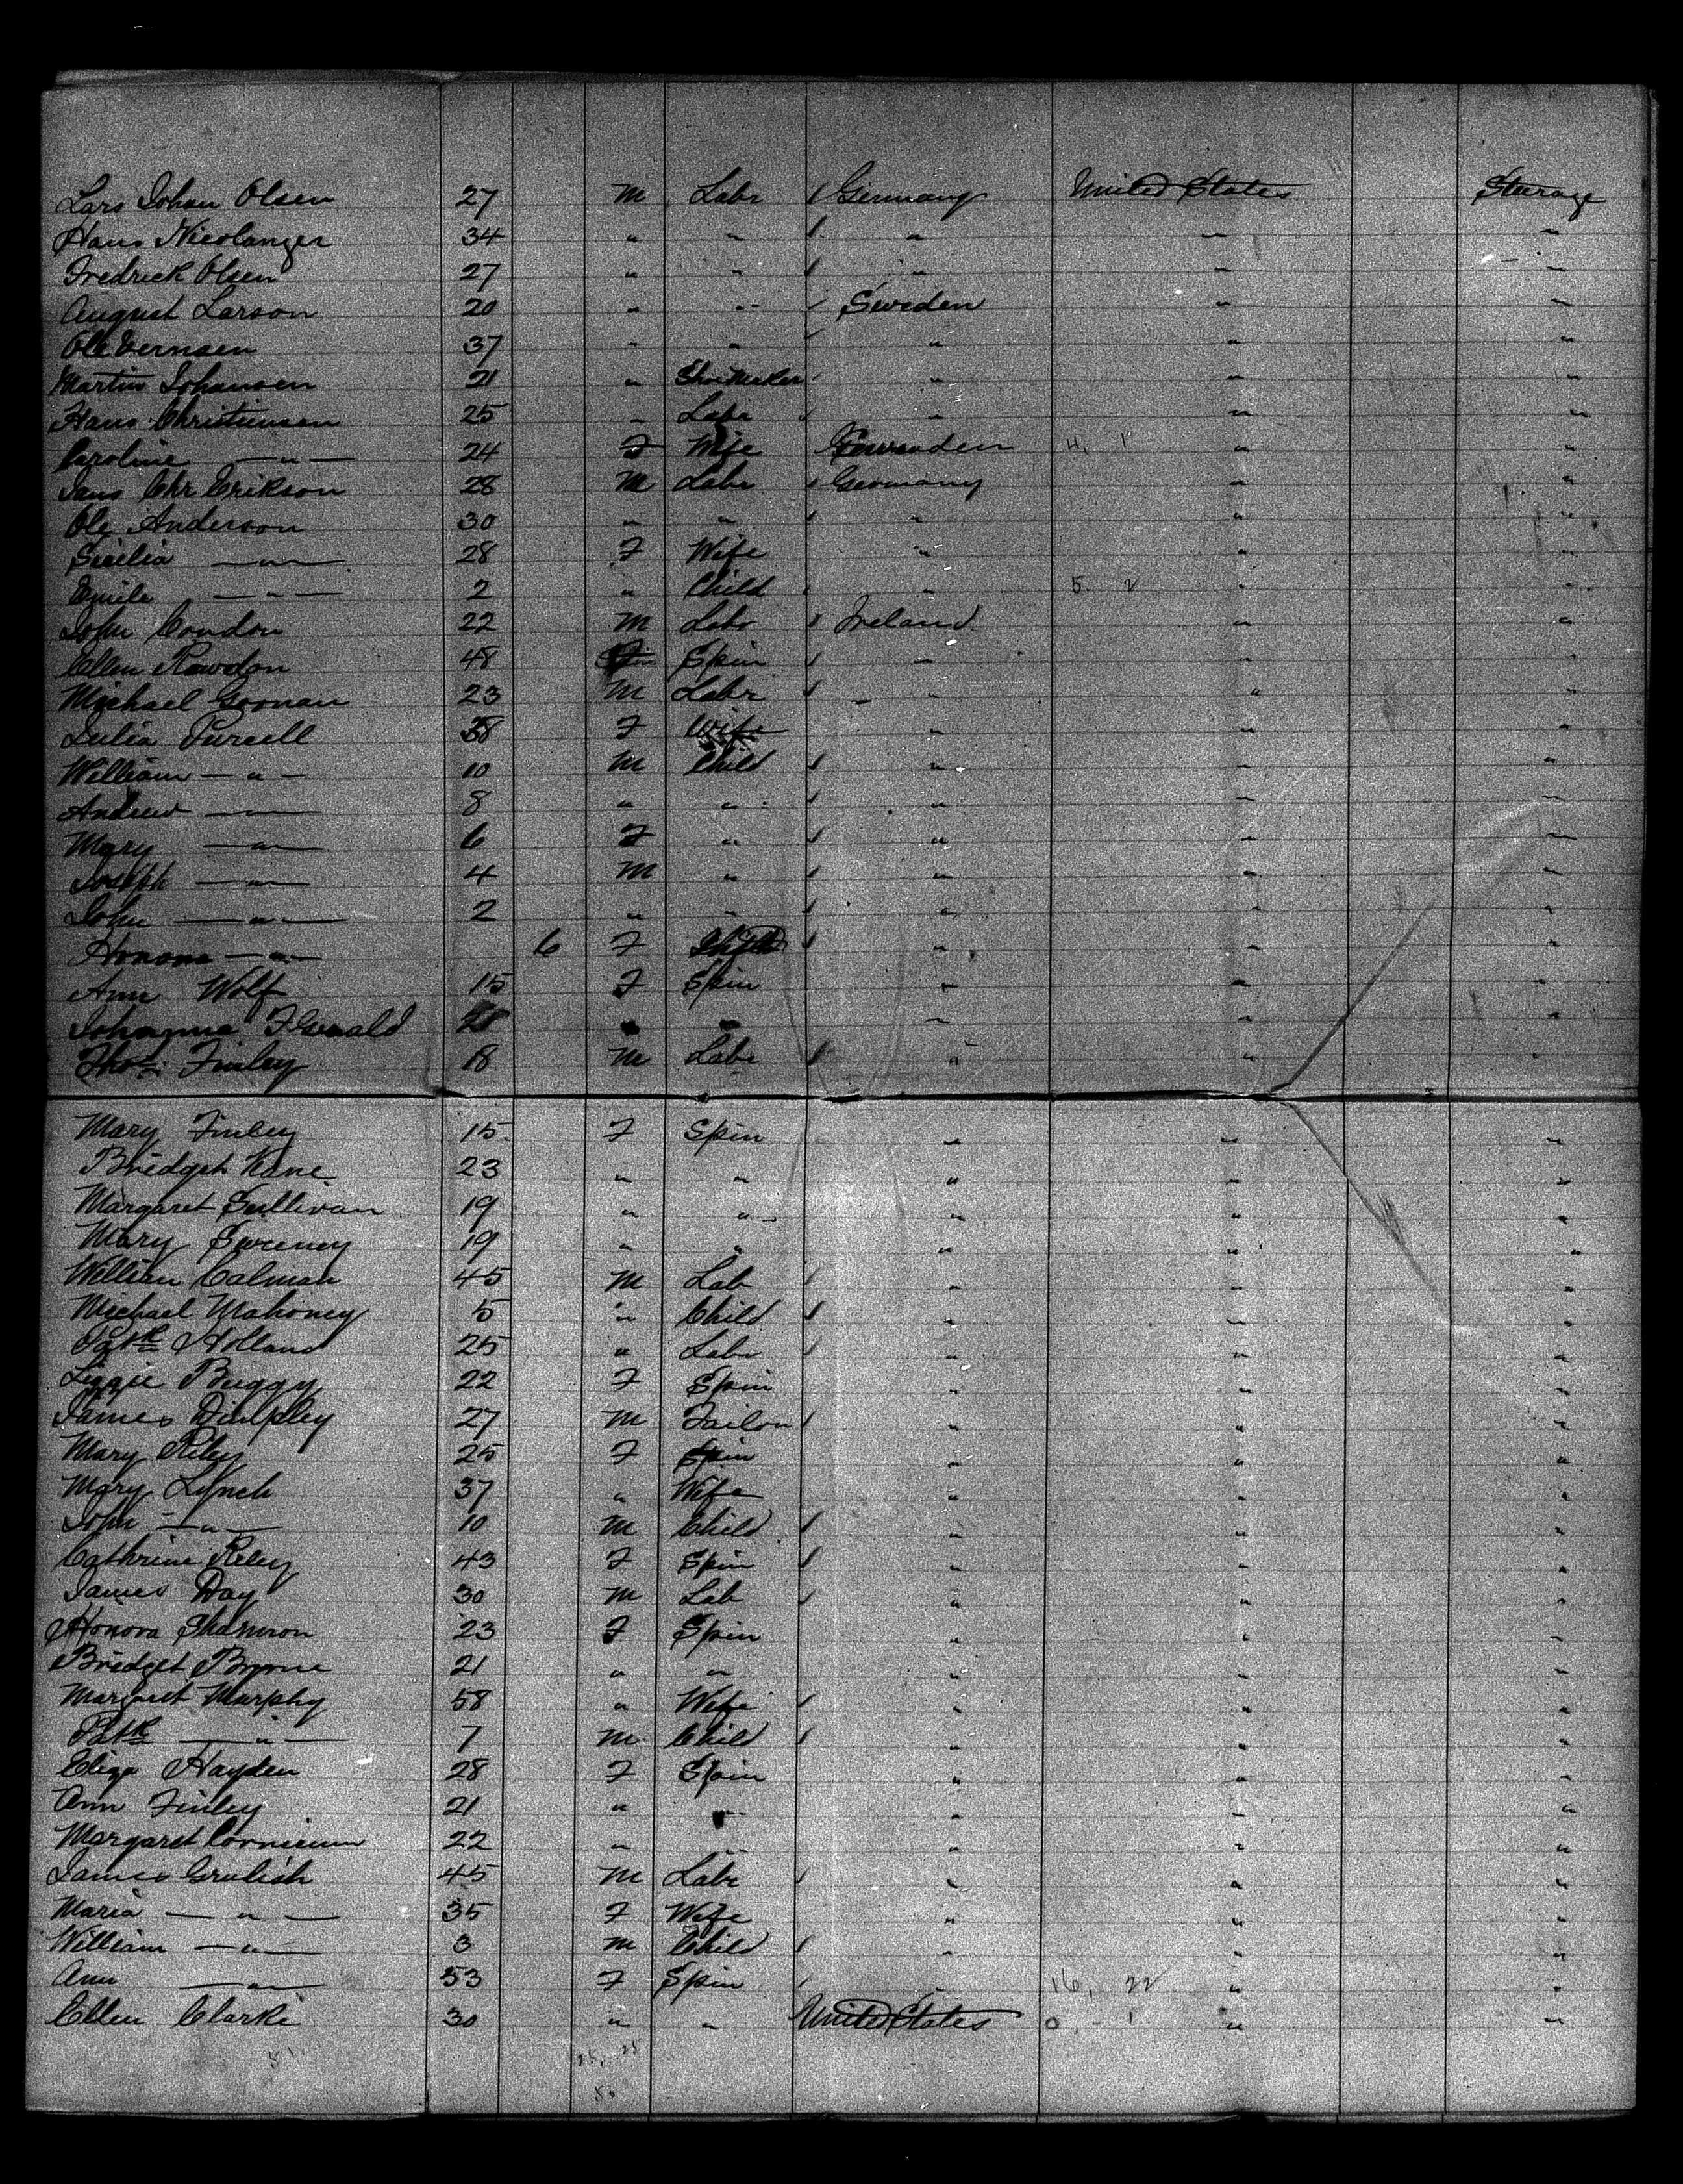 Lars Johan Olsen 27 M Labr Germany United States Steerage
Hans Nicolanger 34 " " " " "
Fredrick Olsen 27 " " " " "
August Larson 20 " " Sweden " "
Ole 37 " " " " "
Martin Johansen 21 " Shoemaker " " "
Hans Christiansen 25 " Labr " " "
Caroline —"— 24 F Wife 4, 1 " "
Jans Chr Erikson 28 M Labr Germany " "
Ole Anderson 30 " " " " "
Sicilia —"— 28 F Wife " " "
Emile —"— 2 " Child " 5 2 " "
John Condon 22 M Labr Ireland " "
Ellen Rowdon 48 Spin " " "
Michael Goonan 23 M Labr " " "
Julia Purcell 38 F Wife " " "
William —"— 10 M Child " " "
Andrew —"— 8 " " " " "
Mary —"— 6 F " " " "
Joseph —"— 4 M " " " "
John —"— 2 " " " " "
Honora —"— 6 F " " "
Ann Wolf 15 F Spin " " "
Johanna " " " " "
Thos. Finley 18 M Labr " " "
Mary Finley 15 F Spin " " "
Bridget Kane 23 " " " " "
Margaret Sullivan 19 " " " " "
Mary Sweeney 19 " " " " "
William Calman 45 M Lab " " "
Michael Mahoney 5 " Child " " "
Patk Holland 25 " Labr " " "
Lizzie Buggy 22 F Spin " " "
James 27 M Tailor " " "
Mary Riley 25 F Spin " " "
Mary Lynch 37 " Wife " " "
John —"— 10 M Child " " "
Cathrine Riley 43 F Spin " " "
James Day 30 M Lab " " "
Honora 23 F Spin " " "
Bridget Byrne 21 " " " " "
Margaret Murphy 58 " Wife " " "
Patk —"— 7 M Child " " "
Eliza Hayden 28 F Spin " " "
Ann Finley 21 " " " " "
Margaret 22 " " " " "
James Grulish 45 M Labr " " "
Maria —"— 35 F Wife " " "
William —"— 3 M Child " " "
Ann —"— 53 F Spin " 16, 22 " "
Ellen Clarke 30 " " United States 0, - 1 " "
51 25, 25
50